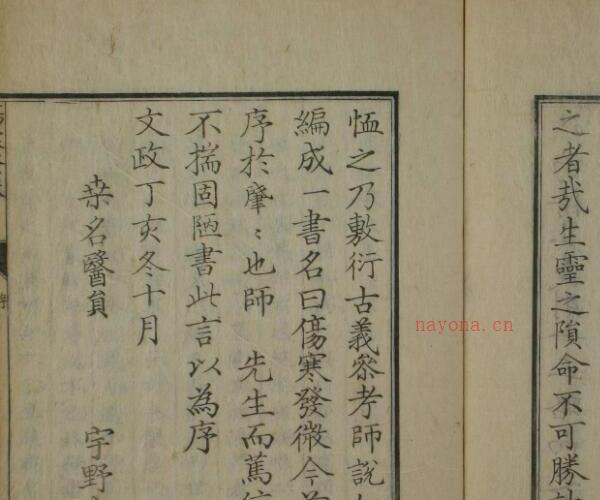 之者哉生靈之隕命不可勝
恤之乃敷衍古義参考師說
編成一書名曰傷寒發微今
序於肇〻也師 先生而篤
不揣固陋書此言以為序
文政丁亥冬十月
桒名醫員 宇野
nayona.cn